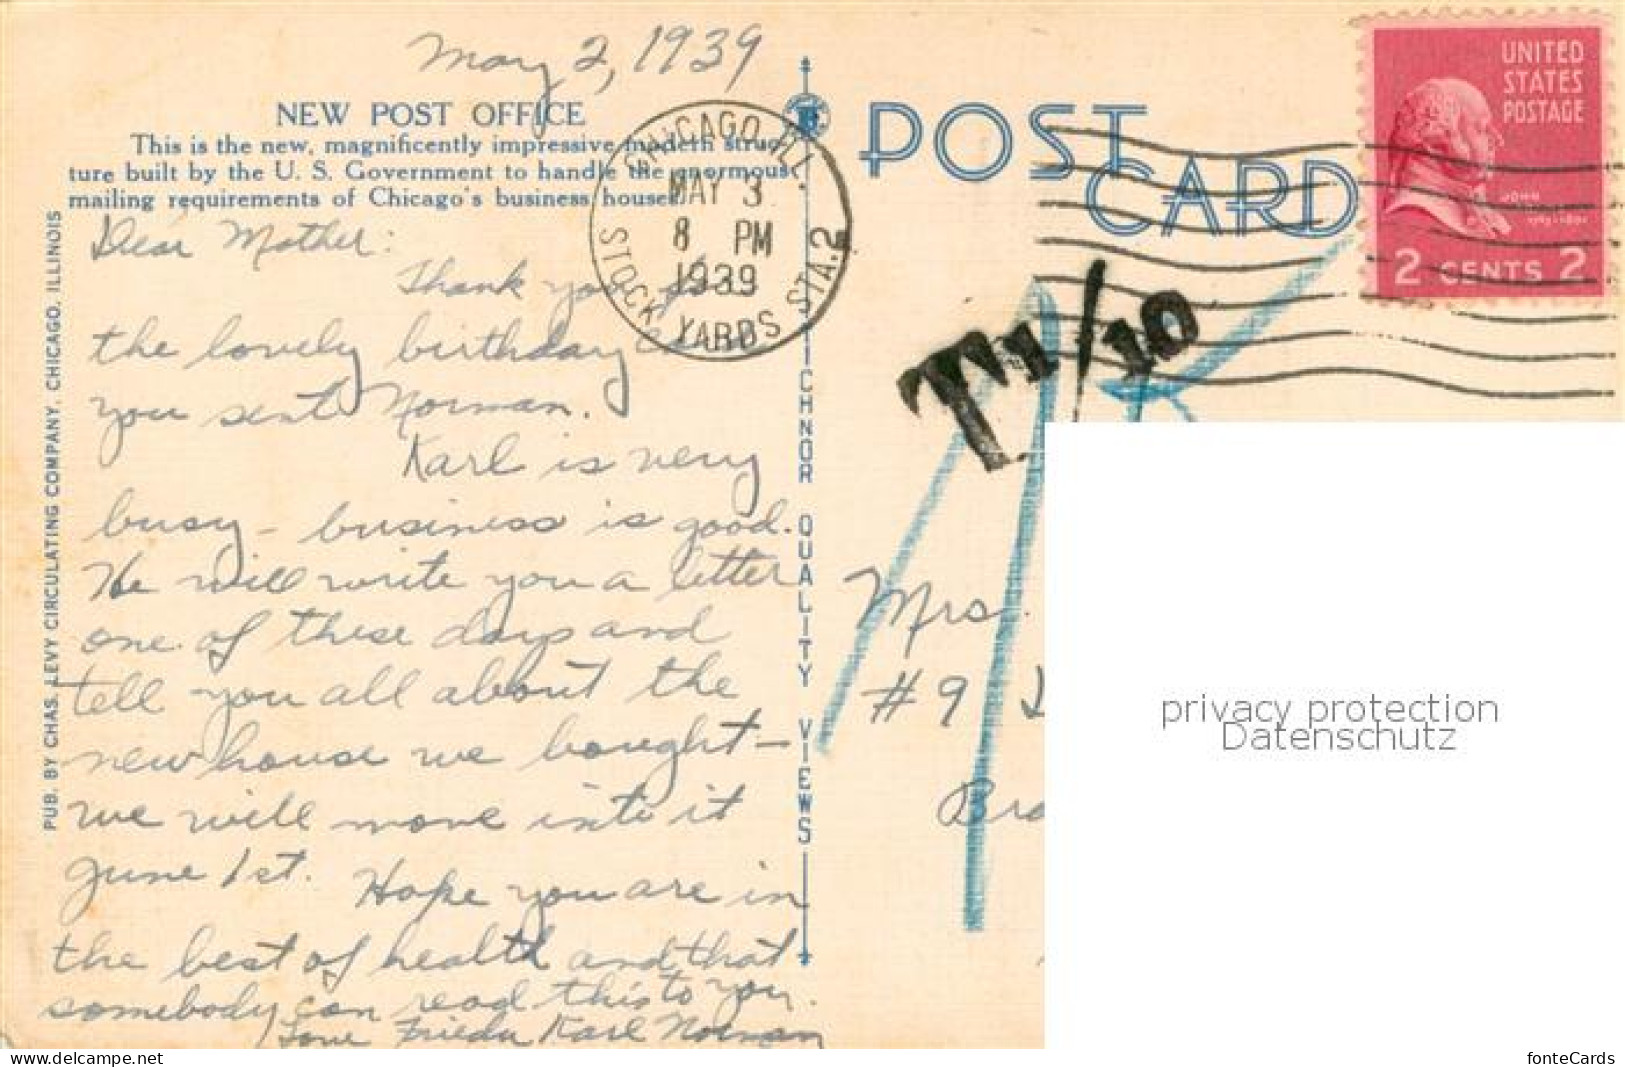 May 2, 1939
NEW POST OFFICE
This is the new, magnificently impressive modern struc-
ture built by the U. S. Government to handle the enormous
mailing requirements of Chicago's business houses.
Dear Mother:
Thank you for
the lovely birthday card
you sent Norman.
Karl is very
busy – business is good.
He will write you a letter
one of these days and
tell you all about the
new house we bought –
we will move into it
June 1st. Hope you are in
the best of health and that
somebody can read this to you.
Love Frieda Karl Norman
PUB. BY CHAS. LEVY CIRCULATING COMPANY, CHICAGO, ILLINOIS
CHICAGO, ILL.
MAY 3
8 PM
1939
STOCK YARDS STA. 2
TICHNOR QUALITY VIEWS
POST
CARD
UNITED
STATES
POSTAGE
JOHN
2 CENTS 2
T 1/10
Mrs.
#9
Bra
privacy protection
Datenschutz
fonteCards